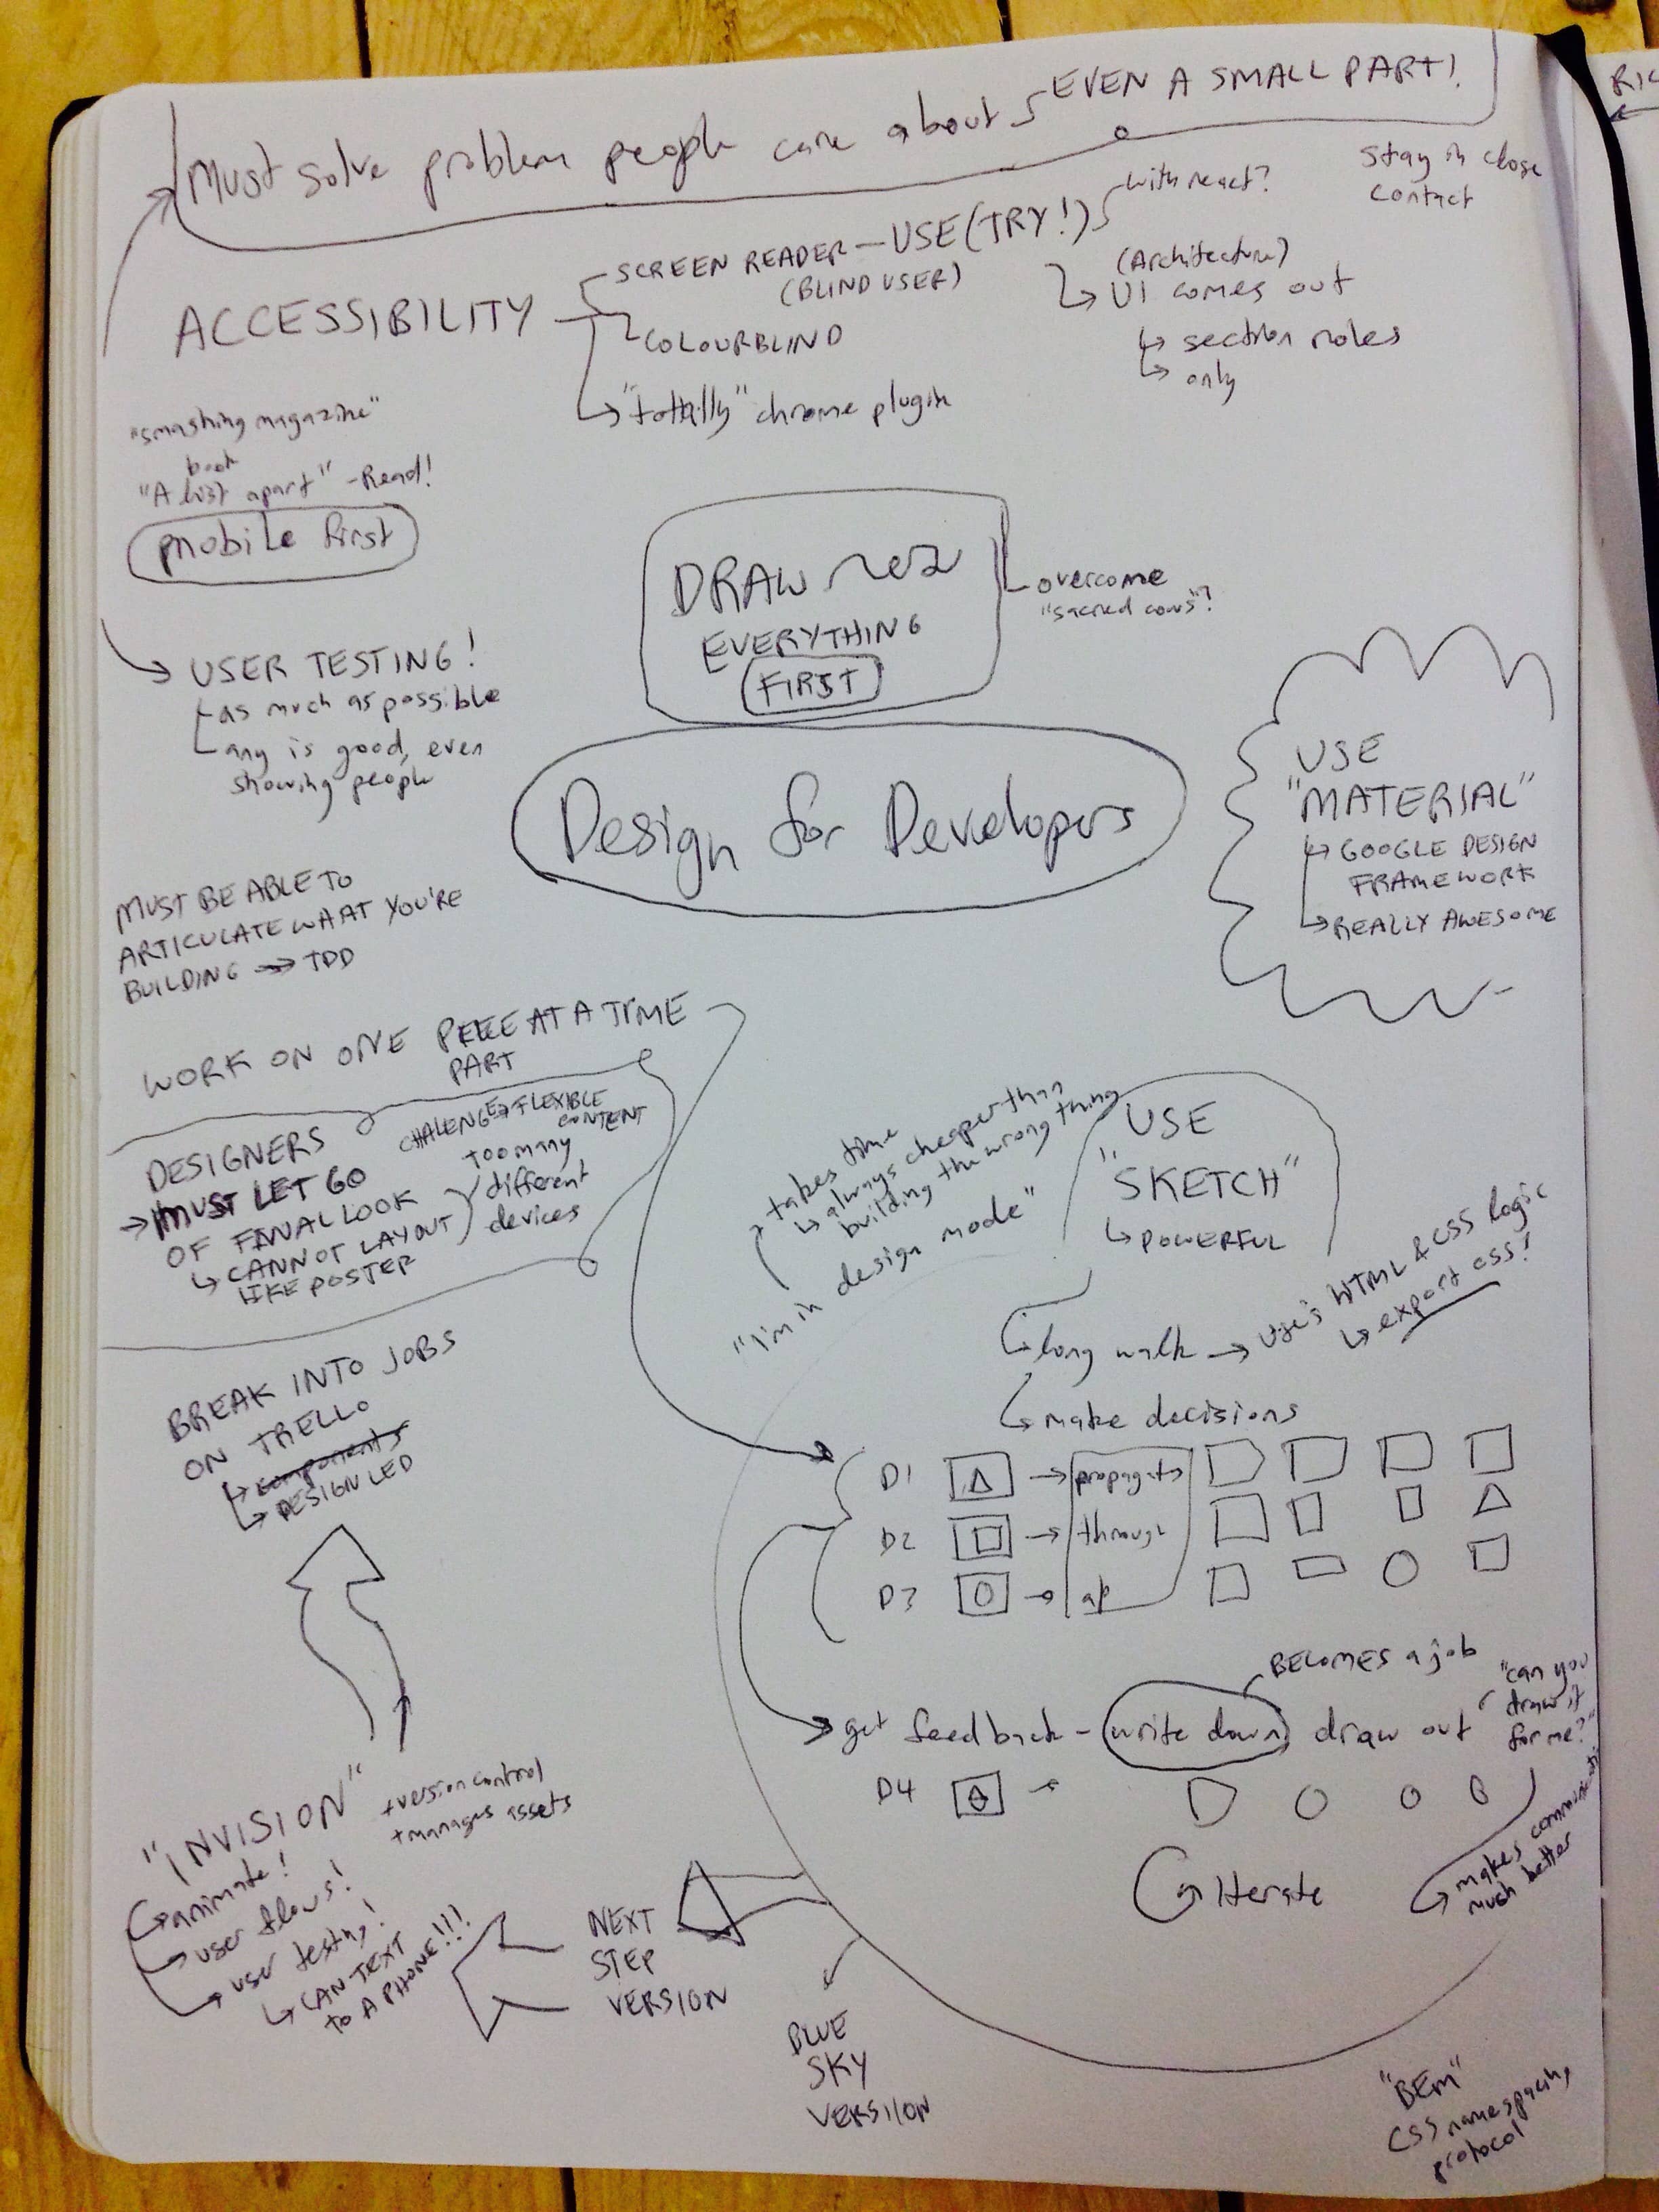 Must solve problem people care about
EVEN A SMALL PART!
Stay in close
contact
ACCESSIBILITY
SCREEN READER - USE (TRY!)
(BLIND USER)
with react?
COLOURBLIND
"totally" chrome plugin
(Architecture)
UI comes out
section roles
only
"smashing magazine"
book
"A list apart" - Read!
mobile first
DRAW
EVERYTHING
FIRST
overcome
"sacred cows"?
USER TESTING!
as much as possible
any is good, even
showing people
Design for Developers
USE
"MATERIAL"
GOOGLE DESIGN
FRAMEWORK
REALLY AWESOME
MUST BE ABLE TO
ARTICULATE WHAT YOU'RE
BUILDING → TDD
WORK ON ONE PIECE AT A TIME
PART
DESIGNERS
→ MUST LET GO
OF FINAL LOOK
↳ CANNOT LAYOUT
LIKE POSTER
CHALENGE → FLEXIBLE
CONTENT
TOO many
different
devices
→ takes time
↳ always cheaper than
building the wrong thing
"I'm in design mode"
USE
"SKETCH"
↳ POWERFUL
long walk → uses HTML & CSS logic
↳ export css!
↳ make decisions
BREAK INTO JOBS
ON TRELLO
↳ components
↳ DESIGN LED
D1 → propagate
D2 → through
D3 → ap
get feedback - write down draw out
BECOMES a job
"can you
draw it
for me?"
D4
Iterate
makes
much better
"INVISION"
+ version control
+ manages assets
animate!
user flows!
user testing!
↳ CAN TEXT
to A PHONE!!!
NEXT
STEP
VERSION
BLUE
SKY
VERSION
"BEM"
CSS namespacing
protocol